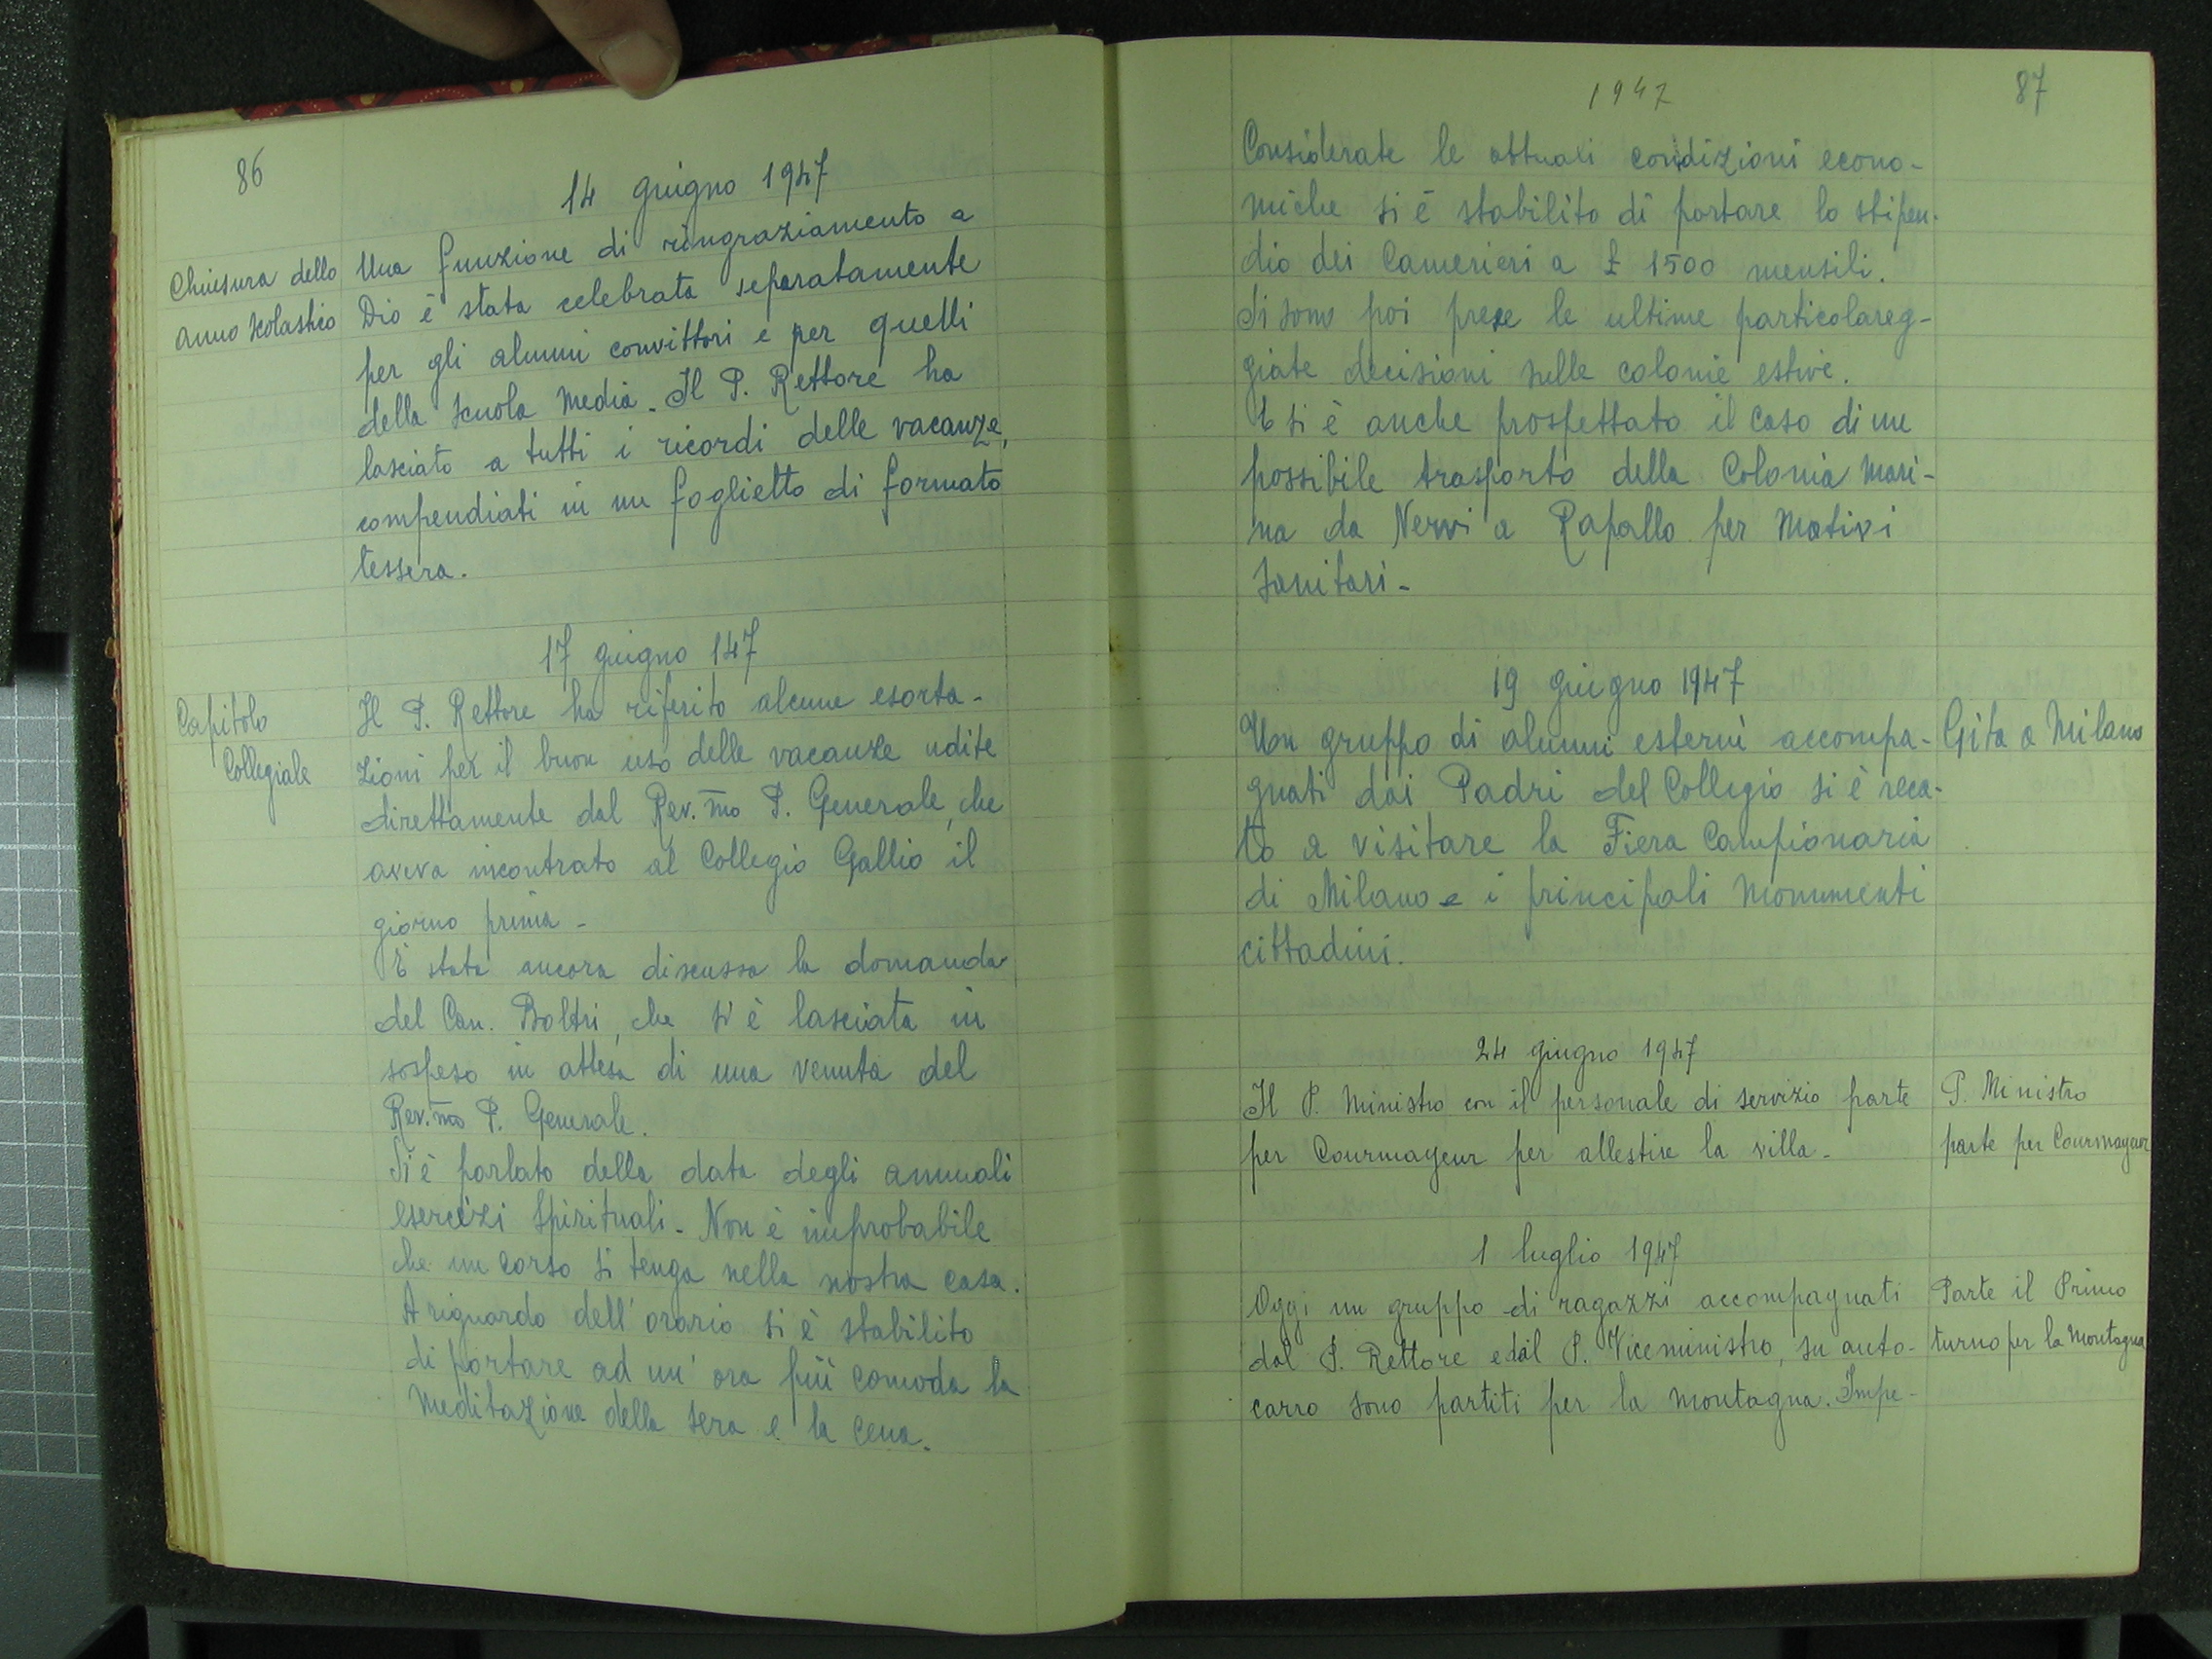 86
14 giugno 1947
Chiusura dello
anno scolastico
Una funzione di ringraziamento a
Dio è stata celebrata separatamente
per gli alunni convittori e per quelli
della scuola media. Il P. Rettore ha
lasciato a tutti i ricordi delle vacanze,
compendiati in un foglietto di formato
tessera.
17 giugno 147
Capitolo
Collegiale
Il P. Rettore ha riferito alcune esorta-
zioni per il buon uso delle vacanze udite
direttamente dal Rev.mo P. Generale, che
aveva incontrato al Collegio Gallio il
giorno prima -
È stata ancora discussa la domanda
del Can. Boltri, che si è lasciata in
sospeso in attesa di una venuta del
Rev.mo P. Generale.
Si è parlato della data degli annuali
esercizi spirituali - Non è improbabile
che un corso si tenga nella nostra casa.
A riguardo dell'orario si è stabilito
di portare ad un'ora più comoda la
Meditazione della sera e la cena.
1947
87
Considerate le attuali condizioni econo-
miche si è stabilito di portare lo stipen-
dio dei Camerieri a £ 1500 mensili.
Si sono poi prese le ultime particolareg-
giate decisioni sulle colonie estive.
E si è anche prospettato il caso di un
possibile trasporto della Colonia Mari-
na da Nervi a Rapallo per Motivi
sanitari -
19 giugno 1947
Gita a Milano
Un gruppo di alunni esterni accompa-
gnati dai Padri del Collegio si è reca-
to a visitare la Fiera Campionaria
di Milano e i principali Monumenti
cittadini.
24 giugno 1947
Il P. Ministro con il personale di servizio parte
per Courmayeur per allestire la villa -
P. Ministro
parte per Courmayeur
1 luglio 1947
Oggi un gruppo di ragazzi accompagnati
dal P. Rettore e dal P. Viceministro, su auto-
carro sono partiti per la montagna. Impe-
Parte il Primo
turno per la Montagna